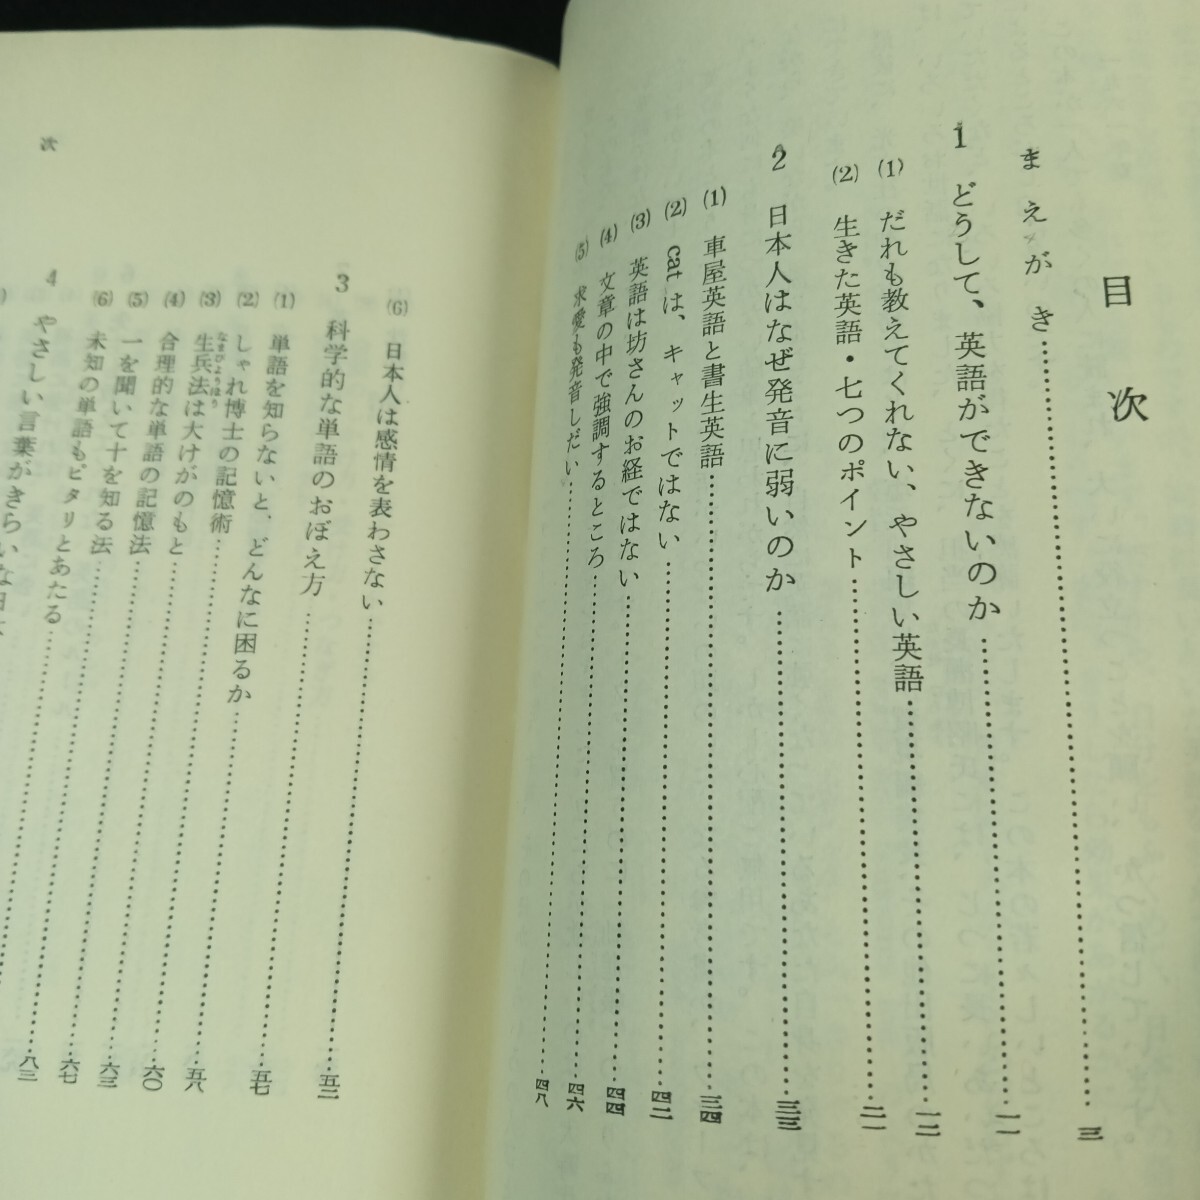 目次
まえがき……三
1 どうして、英語ができないのか……一一
(1) だれも教えてくれない、やさしい英語……一二
(2) 生きた英語・七つのポイント……二一
2 日本人はなぜ発音に弱いのか……三三
(1) 車屋英語と書生英語……三四
(2) catは、キャットではない……四二
(3) 英語は坊さんのお経ではない……四四
(4) 文章の中で強調するところ……四六
(5) 求愛も発音しだい……四八
次
(6) 日本人は感情を表わさない……
3 科学的な単語のおぼえ方……五二
(1) 単語を知らないと、どんなに困るか……五七
(2) しゃれ博士の記憶術……五八
(3) 生兵法は大けがのもと……六〇
(4) 合理的な単語の記憶法
(5) 一を聞いて十を知る法……六三
(6) 未知の単語もピタリとあたる……六七
4 やさしい言葉がきらいな日……八三